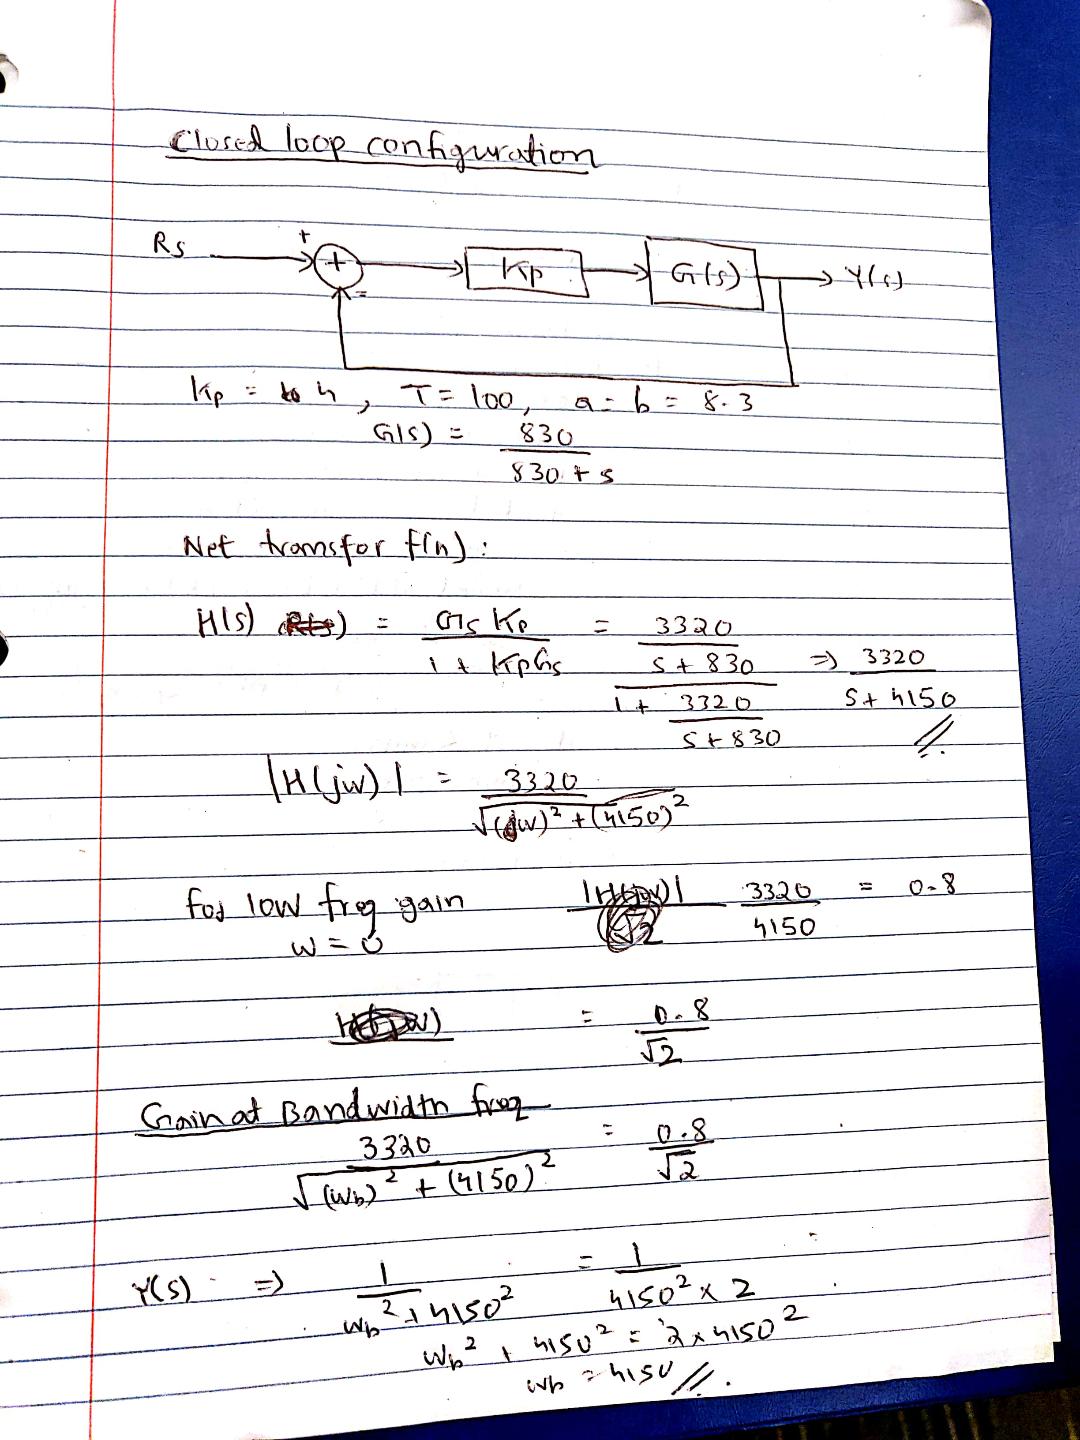 Closed loop configuration
Rs + + - Kp G(s) Y(s)
Kp = 4, T = 100, a = b = 8.3
G(s) = 830 / 830 + s
Net transfor f(n) :
H(s) = Gs Kp / 1 + KpGs = 3320 / s + 830 / 1 + 3320 / s + 830 => 3320 / s + 4150 //.
|H(jw)| = 3320 / √(w)² + (4150)²
For low freq gain 3320 / 4150 = 0.8
w = 0
= 0.8 / √2
Gain at Bandwidth freq
3320 / √(wb)² + (4150)² = 0.8 / √2
Y(s) => 1 / wb² + 4150² = 1 / 4150² x 2
wb² + 4150² = 2 x 4150²
wb = 4150 //.